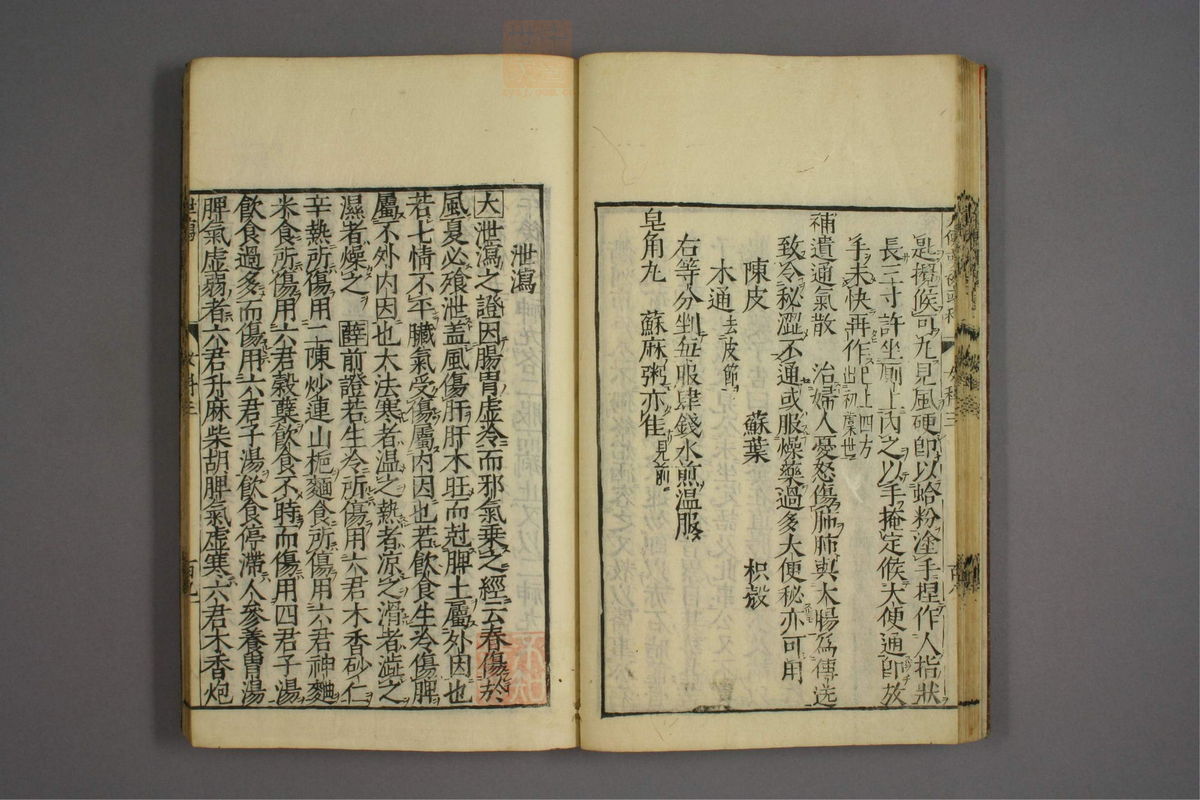 匙擬候可丸見風硬即以蛤粉塗手捏作人指狀
長三寸許坐厠上內之以手掩定候大便通即放
手未快再作已上四方出初虞世
補遺通氣散　治婦人憂怒傷肺肺與大腸為傳送
致令秘澀不通或服燥藥過多大便秘亦可用
陳皮　蘇葉　枳殼
木通去皮節
右等分剉每服肆錢水煎溫服
皂角丸　蘇麻粥亦佳見前
泄瀉
大泄瀉之證因腸胃虛冷而邪氣乘之經云春傷於
風夏必飧泄盖風傷肝肝木旺而尅脾土屬外因也
若七情不平臟氣受傷屬內因也若飲食生冷傷脾
屬不外內因也大法寒者溫之熱者凉之滑者澁之
濕者燥之　薛前證若生冷所傷用六君木香砂仁
辛熱所傷用二陳炒連山梔麵食所傷用六君神麯
米食所傷用六君穀糵飲食不時而傷用四君子湯
飲食過多而傷用六君子湯飲食停滯人參養胃湯
脾氣虛弱者六君升麻柴胡脾氣虛寒六君木香炮